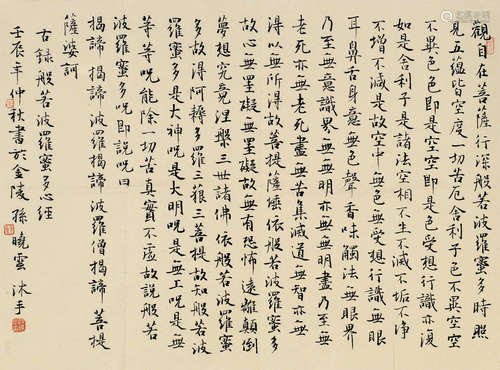 觀自在菩薩行深般若波羅蜜多時照
見五蘊皆空度一切苦厄舍利子色不異空空
不異色色即是空空即是色受想行識亦復
如是舍利子是諸法空相不生不滅不垢不淨
不增不減是故空中無色無受想行識無眼
耳鼻舌身意無色聲香味觸法無眼界
乃至無意識界無無明亦無無明盡乃至無
老死亦無老死盡無苦集滅道無智亦無
得以無所得故菩提薩埵依般若波羅蜜多
故心無罣礙無罣礙故無有恐怖遠離顛倒
夢想究竟涅槃三世諸佛依般若波羅蜜
多故得阿耨多羅三藐三菩提故知般若波
羅蜜多是大神呪是大明呪是無上呪是無
等等呪能除一切苦真實不虛故說般若
波羅蜜多呪即說呪曰
揭諦揭諦波羅揭諦波羅僧揭諦菩提
薩婆訶
右錄般若波羅蜜多心經
壬辰年仲秋書於金陵孫曉雲沐手